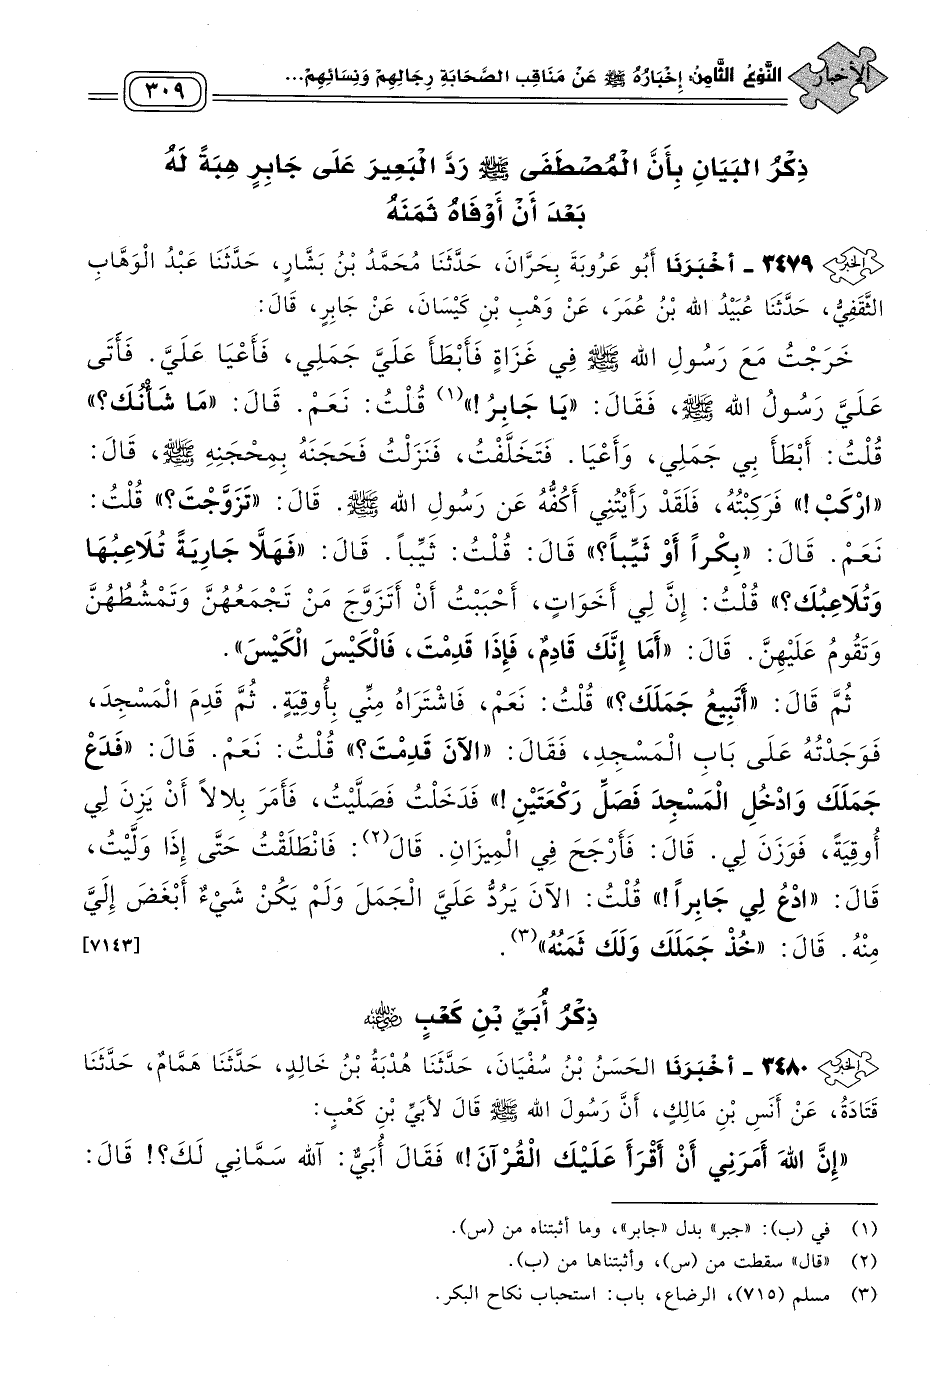 الأخبار النَّوْعُ الثَّامِنُ: إِخْبَارُهُ ﷺ عَنْ مَنَاقِبِ الصَّحَابَةِ رِجَالِهِمْ وَنِسَائِهِمْ... ٣٠٩
ذِكْرُ البَيَانِ بِأَنَّ الْمُصْطَفَى ﷺ رَدَّ الْبَعِيرَ عَلَى جَابِرٍ هِبَةً لَهُ
بَعْدَ أَنْ أَوْفَاهُ ثَمَنَهُ
٣٤٧٩ ـ أخْبَرَنَا أَبُو عَرُوبَةَ بِحَرَّانَ، حَدَّثَنَا مُحَمَّدُ بْنُ بَشَّارٍ، حَدَّثَنَا عَبْدُ الْوَهَّابِ
الثَّقَفِيُّ، حَدَّثَنَا عُبَيْدُ الله بْنُ عُمَرَ، عَنْ وَهْبِ بْنِ كَيْسَانَ، عَنْ جَابِرٍ، قَالَ:
خَرَجْتُ مَعَ رَسُولِ الله ﷺ فِي غَزَاةٍ فَأَبْطَأَ عَلَيَّ جَمَلِي، فَأَعْيَا عَلَيَّ. فَأَتَى
عَلَيَّ رَسُولُ الله ﷺ، فَقَالَ: «يَا جَابِرُ!»(١) قُلْتُ: نَعَمْ. قَالَ: «مَا شَأْنُكَ؟»
قُلْتُ: أَبْطَأَ بِي جَمَلِي، وَأَعْيَا. فَتَخَلَّفْتُ، فَنَزَلْتُ فَحَجَنَهُ بِمِحْجَنِهِ ﷺ، قَالَ:
«ارْكَبْ!» فَرَكِبْتُهُ، فَلَقَدْ رَأَيْتُنِي أَكُفُّهُ عَن رَسُولِ الله ﷺ. قَالَ: «تَزَوَّجْتَ؟» قُلْتُ:
نَعَمْ. قَالَ: «بِكْراً أَوْ ثَيِّباً؟» قَالَ: قُلْتُ: ثَيِّباً. قَالَ: «فَهَلَّا جَارِيَةً تُلَاعِبُهَا
وَتُلَاعِبُكَ؟» قُلْتُ: إِنَّ لِي أَخَوَاتٍ، أَحْبَبْتُ أَنْ أَتَزَوَّجَ مَنْ تَجْمَعُهُنَّ وَتَمْشُطُهُنَّ
وَتَقُومُ عَلَيْهِنَّ. قَالَ: «أَمَا إِنَّكَ قَادِمٌ، فَإِذَا قَدِمْتَ، فَالْكَيْسَ الْكَيْسَ».
ثُمَّ قَالَ: «أَتَبِيعُ جَمَلَكَ؟» قُلْتُ: نَعَمْ، فَاشْتَرَاهُ مِنِّي بِأُوقِيَةٍ. ثُمَّ قَدِمَ الْمَسْجِدَ،
فَوَجَدْتُهُ عَلَى بَابِ الْمَسْجِدِ، فَقَالَ: «الآنَ قَدِمْتَ؟» قُلْتُ: نَعَمْ. قَالَ: «فَدَعْ
جَمَلَكَ وَادْخُلِ الْمَسْجِدَ فَصَلِّ رَكْعَتَيْنِ!» فَدَخَلْتُ فَصَلَّيْتُ، فَأَمَرَ بِلالاً أَنْ يَزِنَ لِي
أُوقِيَةً، فَوَزَنَ لِي. قَالَ: فَأَرْجَحَ فِي الْمِيزَانِ. قَالَ(٢): فَانْطَلَقْتُ حَتَّى إِذَا وَلَّيْتُ،
قَالَ: «ادْعُ لِي جَابِراً!» قُلْتُ: الآنَ يَرُدُّ عَلَيَّ الْجَمَلَ وَلَمْ يَكُنْ شَيْءٌ أَبْغَضَ إِلَيَّ
مِنْهُ. قَالَ: «خُذْ جَمَلَكَ وَلَكَ ثَمَنُهُ»(٣). [٧١٤٣]
ذِكْرُ أُبَيِّ بْنِ كَعْبٍ رضي الله عنه
٣٤٨٠ ـ أخْبَرَنَا الحَسَنُ بْنُ سُفْيَانَ، حَدَّثَنَا هُدْبَةُ بْنُ خَالِدٍ، حَدَّثَنَا هَمَّامٌ، حَدَّثَنَا
قَتَادَةُ، عَنْ أَنَسِ بْنِ مَالِكٍ، أَنَّ رَسُولَ الله ﷺ قَالَ لأُبَيِّ بْنِ كَعْبٍ:
«إِنَّ اللهَ أَمَرَنِي أَنْ أَقْرَأَ عَلَيْكَ الْقُرْآنَ!» فَقَالَ أُبَيٌّ: آلله سَمَّانِي لَكَ؟! قَالَ:
(١) في (ب): «جبر» بدل «جابر»، وما أثبتناه من (س).
(٢) «قال» سقطت من (س)، وأثبتناها من (ب).
(٣) مسلم (٧١٥)، الرضاع، باب: استحباب نكاح البكر.